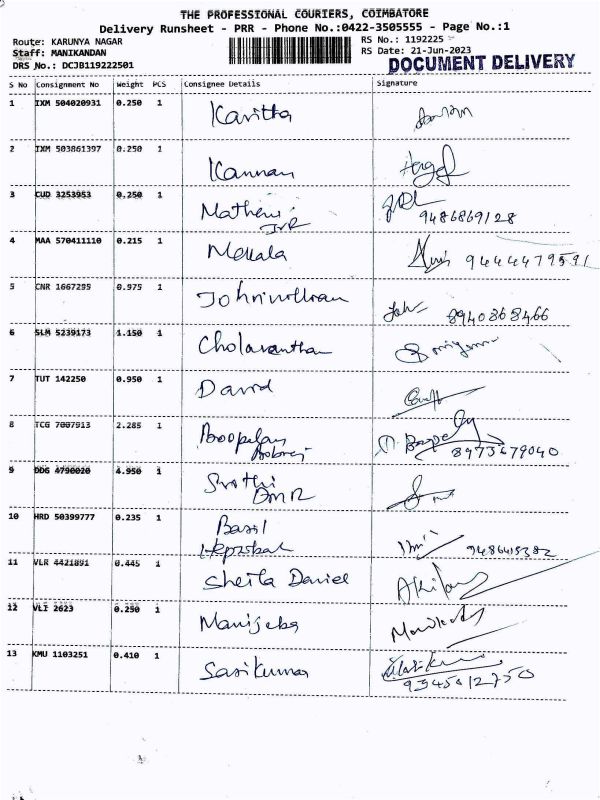 THE PROFESSIONAL COURIERS, COIMBATORE
Delivery Runsheet - PRR - Phone No.:0422-3505555 - Page No.:1
Route: KARUNYA NAGAR
RS No.: 1192225
Staff: MANIKANDAN
RS Date: 21-Jun-2023
DRS No.: DCJB119222501
DOCUMENT DELIVERY
S No Consignment No Weight PCS Consignee Details Signature
1 IXM 504020931 0.250 1 Kavitha
2 IXM 503861397 0.250 1 Kannan
3 CUD 3253953 0.250 1 Mathew
9486869128
4 MAA 570411110 0.215 1 Mekala 9444479591
5 CNR 1667295 0.975 1 Johnwilliam
8940868466
6 SLM 5239173 1.150 1 Cholavanthan
7 TUT 142250 0.950 1 David
8 TCG 7007913 2.285 1 Boopelan
8973679040
9 DDG 4790020 4.950 1
DMR
10 HRD 50399777 0.235 1 Basil
9486415382
11 VLR 4421891 0.445 1 Sheila Daniel
12 VLI 2623 0.250 1 Manijeba
13 KMU 1103251 0.410 1 Sasikumar
9345012750